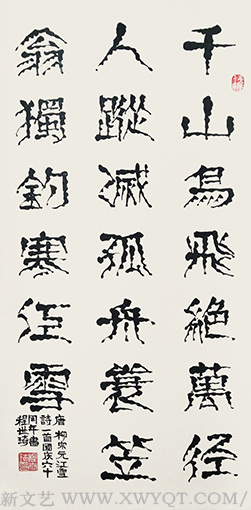 千山鳥飛絕萬径
人蹤滅孤舟蓑笠
翁獨釣寒江雪
唐柳宗元江雪
詩一首國庆六十
周年書
程世
新文艺 / WWW.XWYQT.COM /